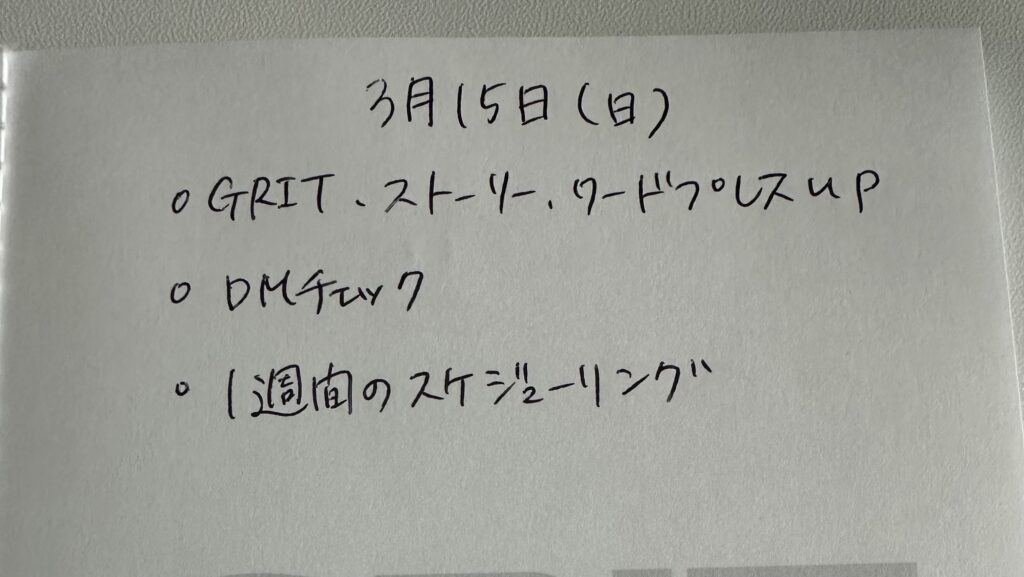 3月15日(日)
○ GRIT、ストーリー、ワードプレスup
○ DMチェック
○ 1週間のスケジューリング